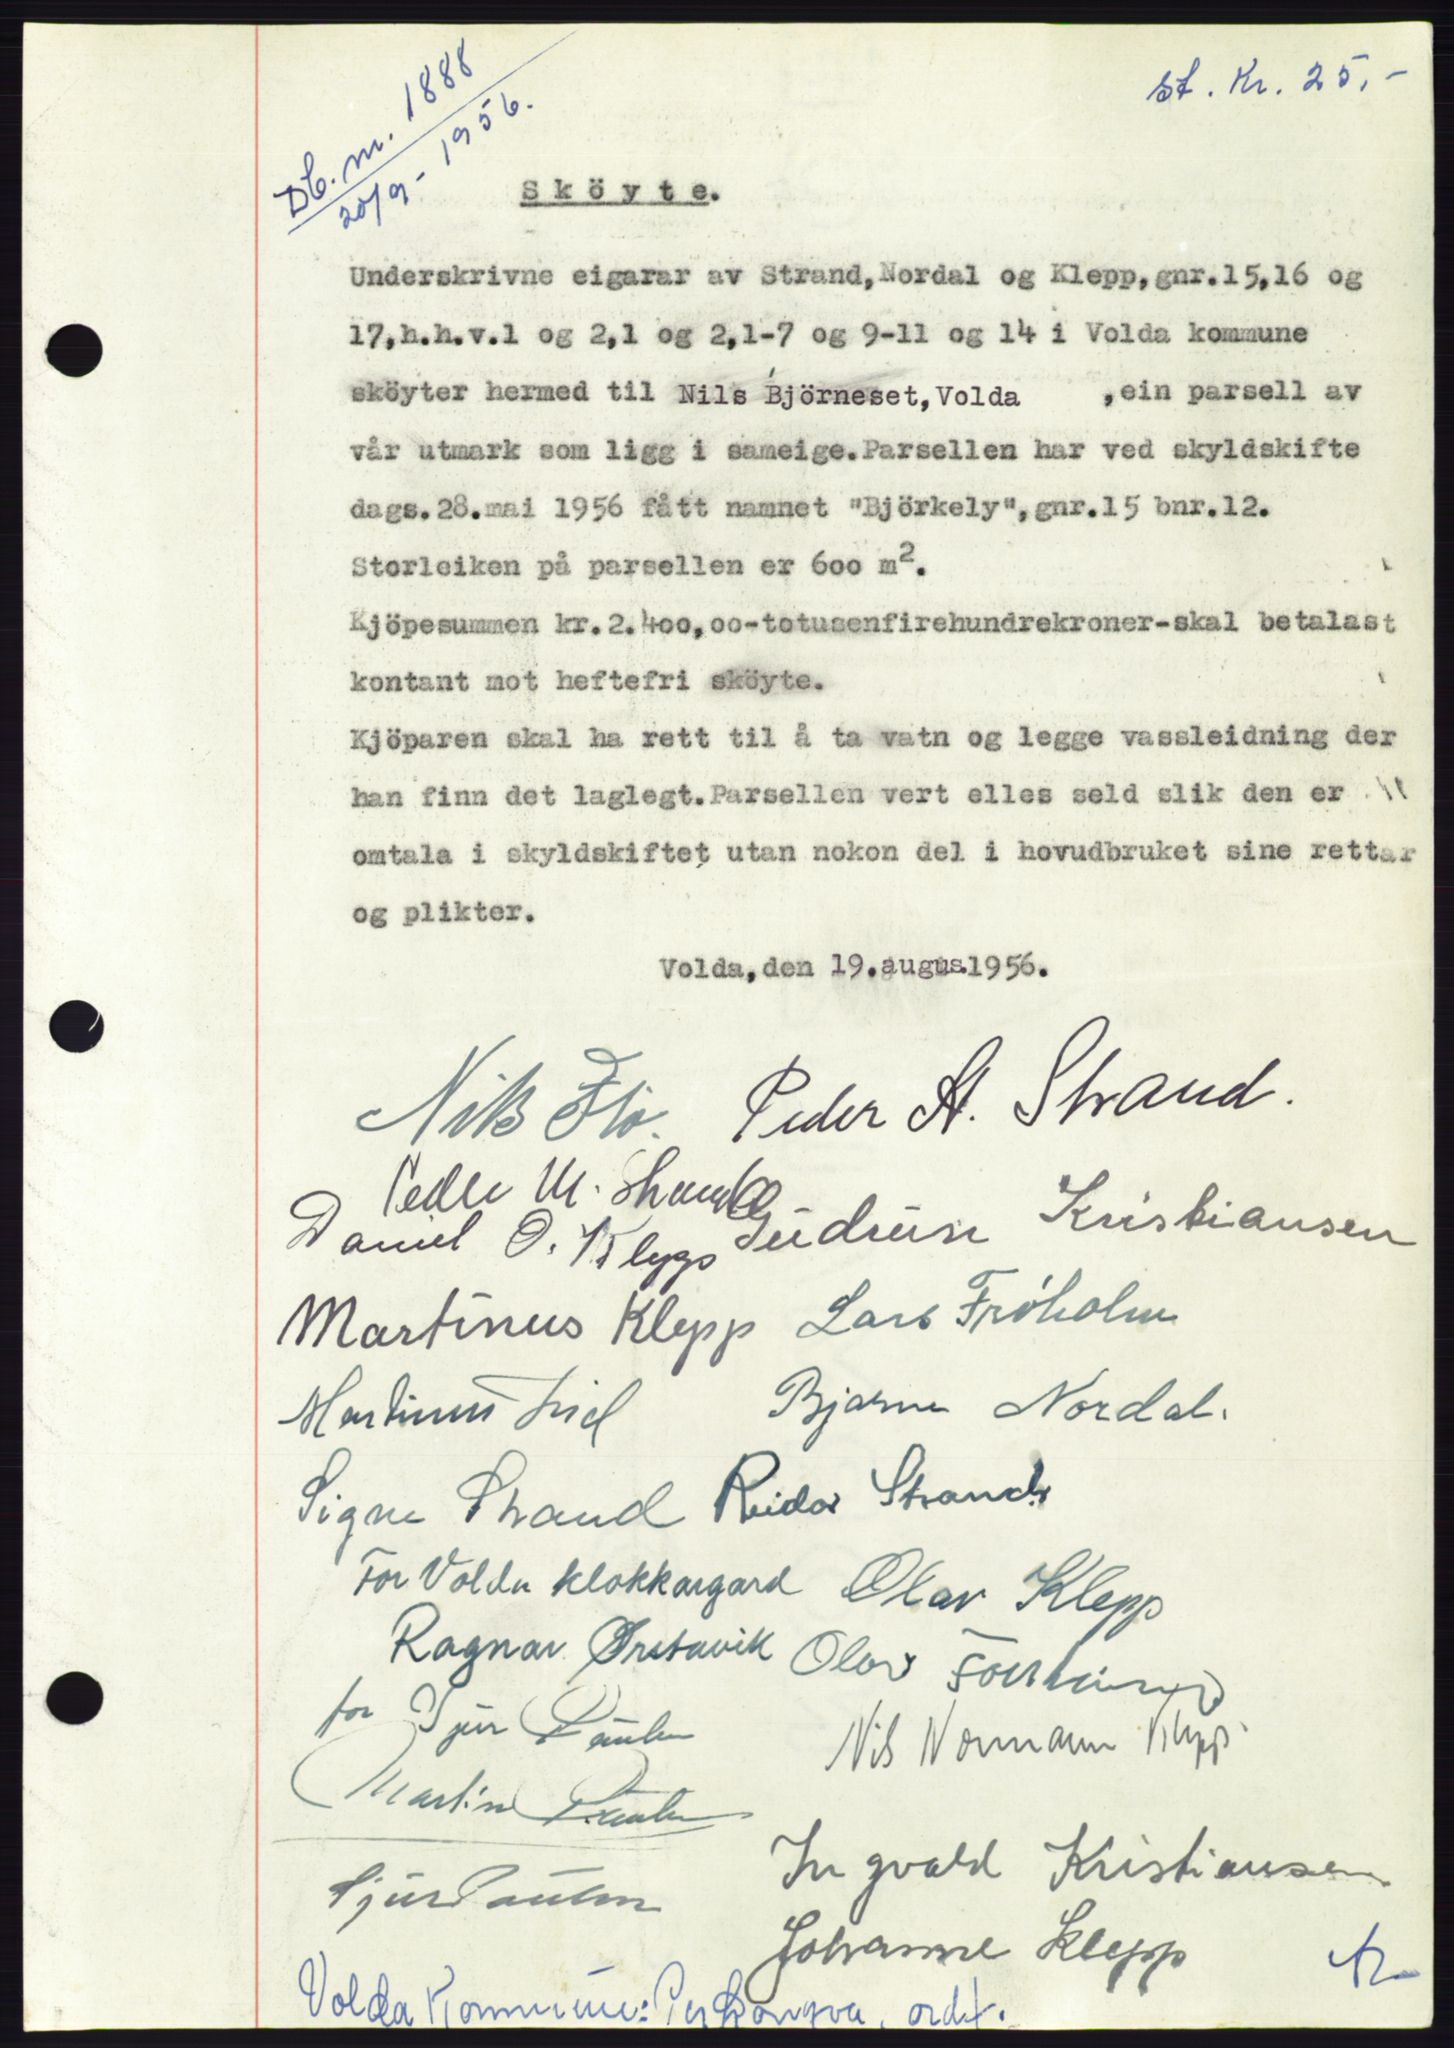 Db. nr. 1888
20/9 - 1956.
st. Kr. 25,-
Sköyte.
Underskrivne eigarar av Strand,Nordal og Klepp,gnr.15,16 og
17,h.h.v.1 og 2,1 og 2,1-7 og 9-11 og 14 i Volda kommune
sköyter hermed til Nils Björneset,Volda ,ein parsell av
vår utmark som ligg i sameige.Parsellen har ved skyldskifte
dags.28.mai 1956 fått namnet "Björkely",gnr.15 bnr.12.
Storleiken på parsellen er 600 m².
Kjöpesummen kr.2.400,00-totusenfirehundrekroner-skal betalast
kontant mot heftefri sköyte.
Kjöparen skal ha rett til å ta vatn og legge vassleidning der
han finn det laglegt.Parsellen vert elles seld slik den er
omtala i skyldskiftet utan nokon del i hovudbruket sine rettar
og plikter.
Volda,den 19.augus.1956.
Nils Flo. Peder A. Strand.
Peder M. Strand
Daniel O. Klepp Gudrun Kristiansen
Martinus Klepp Lars Fröholm
Martinus Bjarne Nordal.
Signe Strand Reidar Strand
For Volda klokkargard Olav Klepp
Ragnar Ørstavik Olav
for Sjur Paulen
Nils Normann Klepp
Martin Paulen
Ingvald Kristiansen
Sjur Paulen
Johanne Klepp
Volda Kommune: ordf.